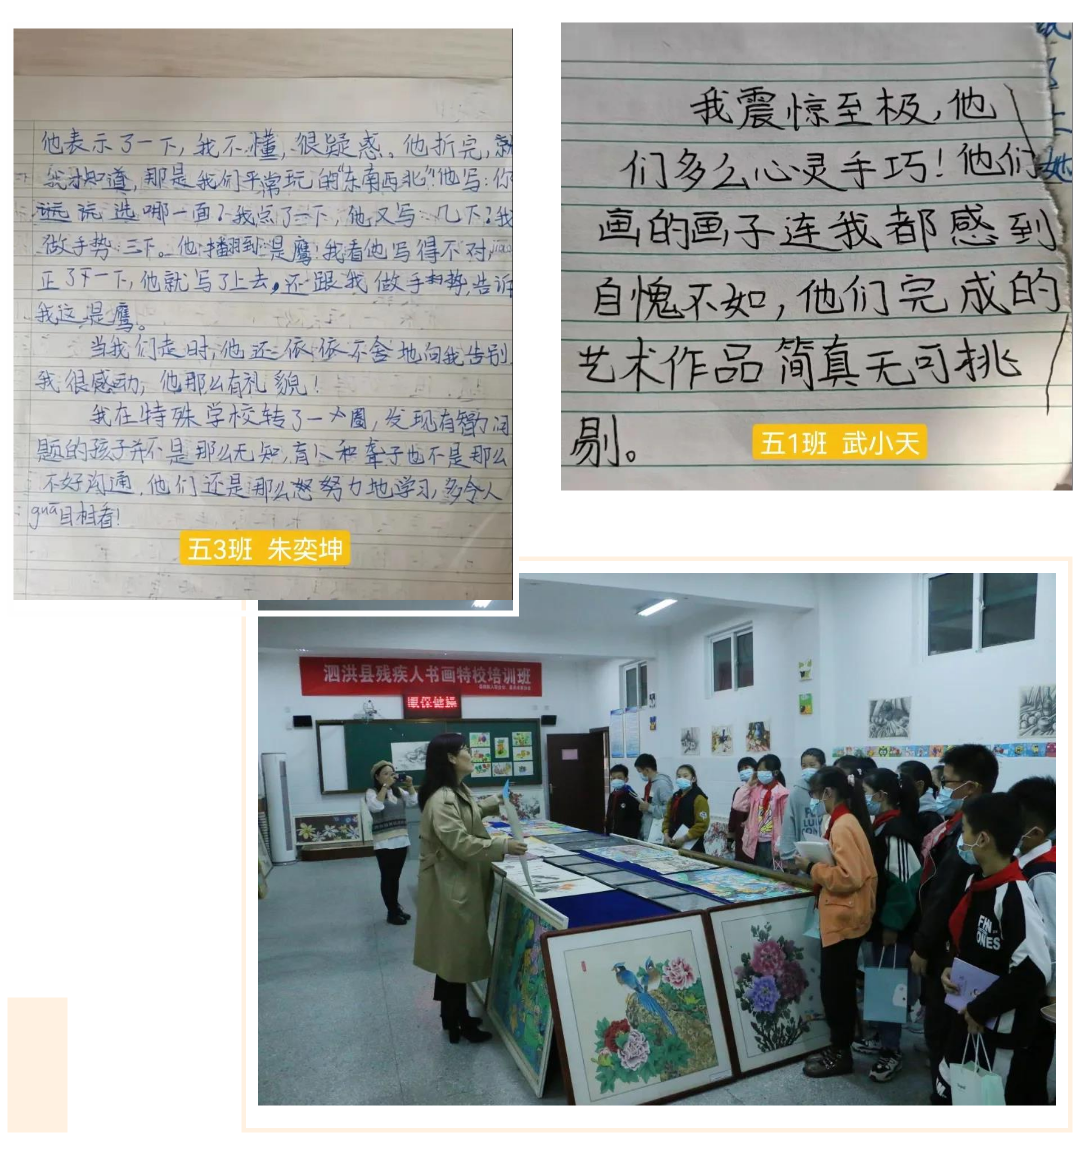 他表示了一下，我不懂，很疑惑。他折完，就
我才知道，那是我们平常玩的“东南西北”！他写：你
说选哪一面？我点了一下，他又写：几下？我
做手势：三下。他翻到“是鹰！我看他写得不对，jiǎo
正了一下，他就写了上去，还跟我做手势，告诉
我这是鹰。
当我们走时，他还依依不舍地向我告别，
我很感动，他那么有礼貌！
我在特殊学校转了一大圈，发现有智力问
题的孩子并不是那么无知，盲人和聋子也不是那么
不好沟通，他们还是那么努力地学习，多令人
guā目相看！
五3班 朱奕坤
我震惊至极，他
们多么心灵手巧！他们
画的画子连我都感到
自愧不如，他们完成的
艺术作品简真无可挑
剔。
五1班 武小天
泗洪县残疾人书画特校培训班
眼保健操